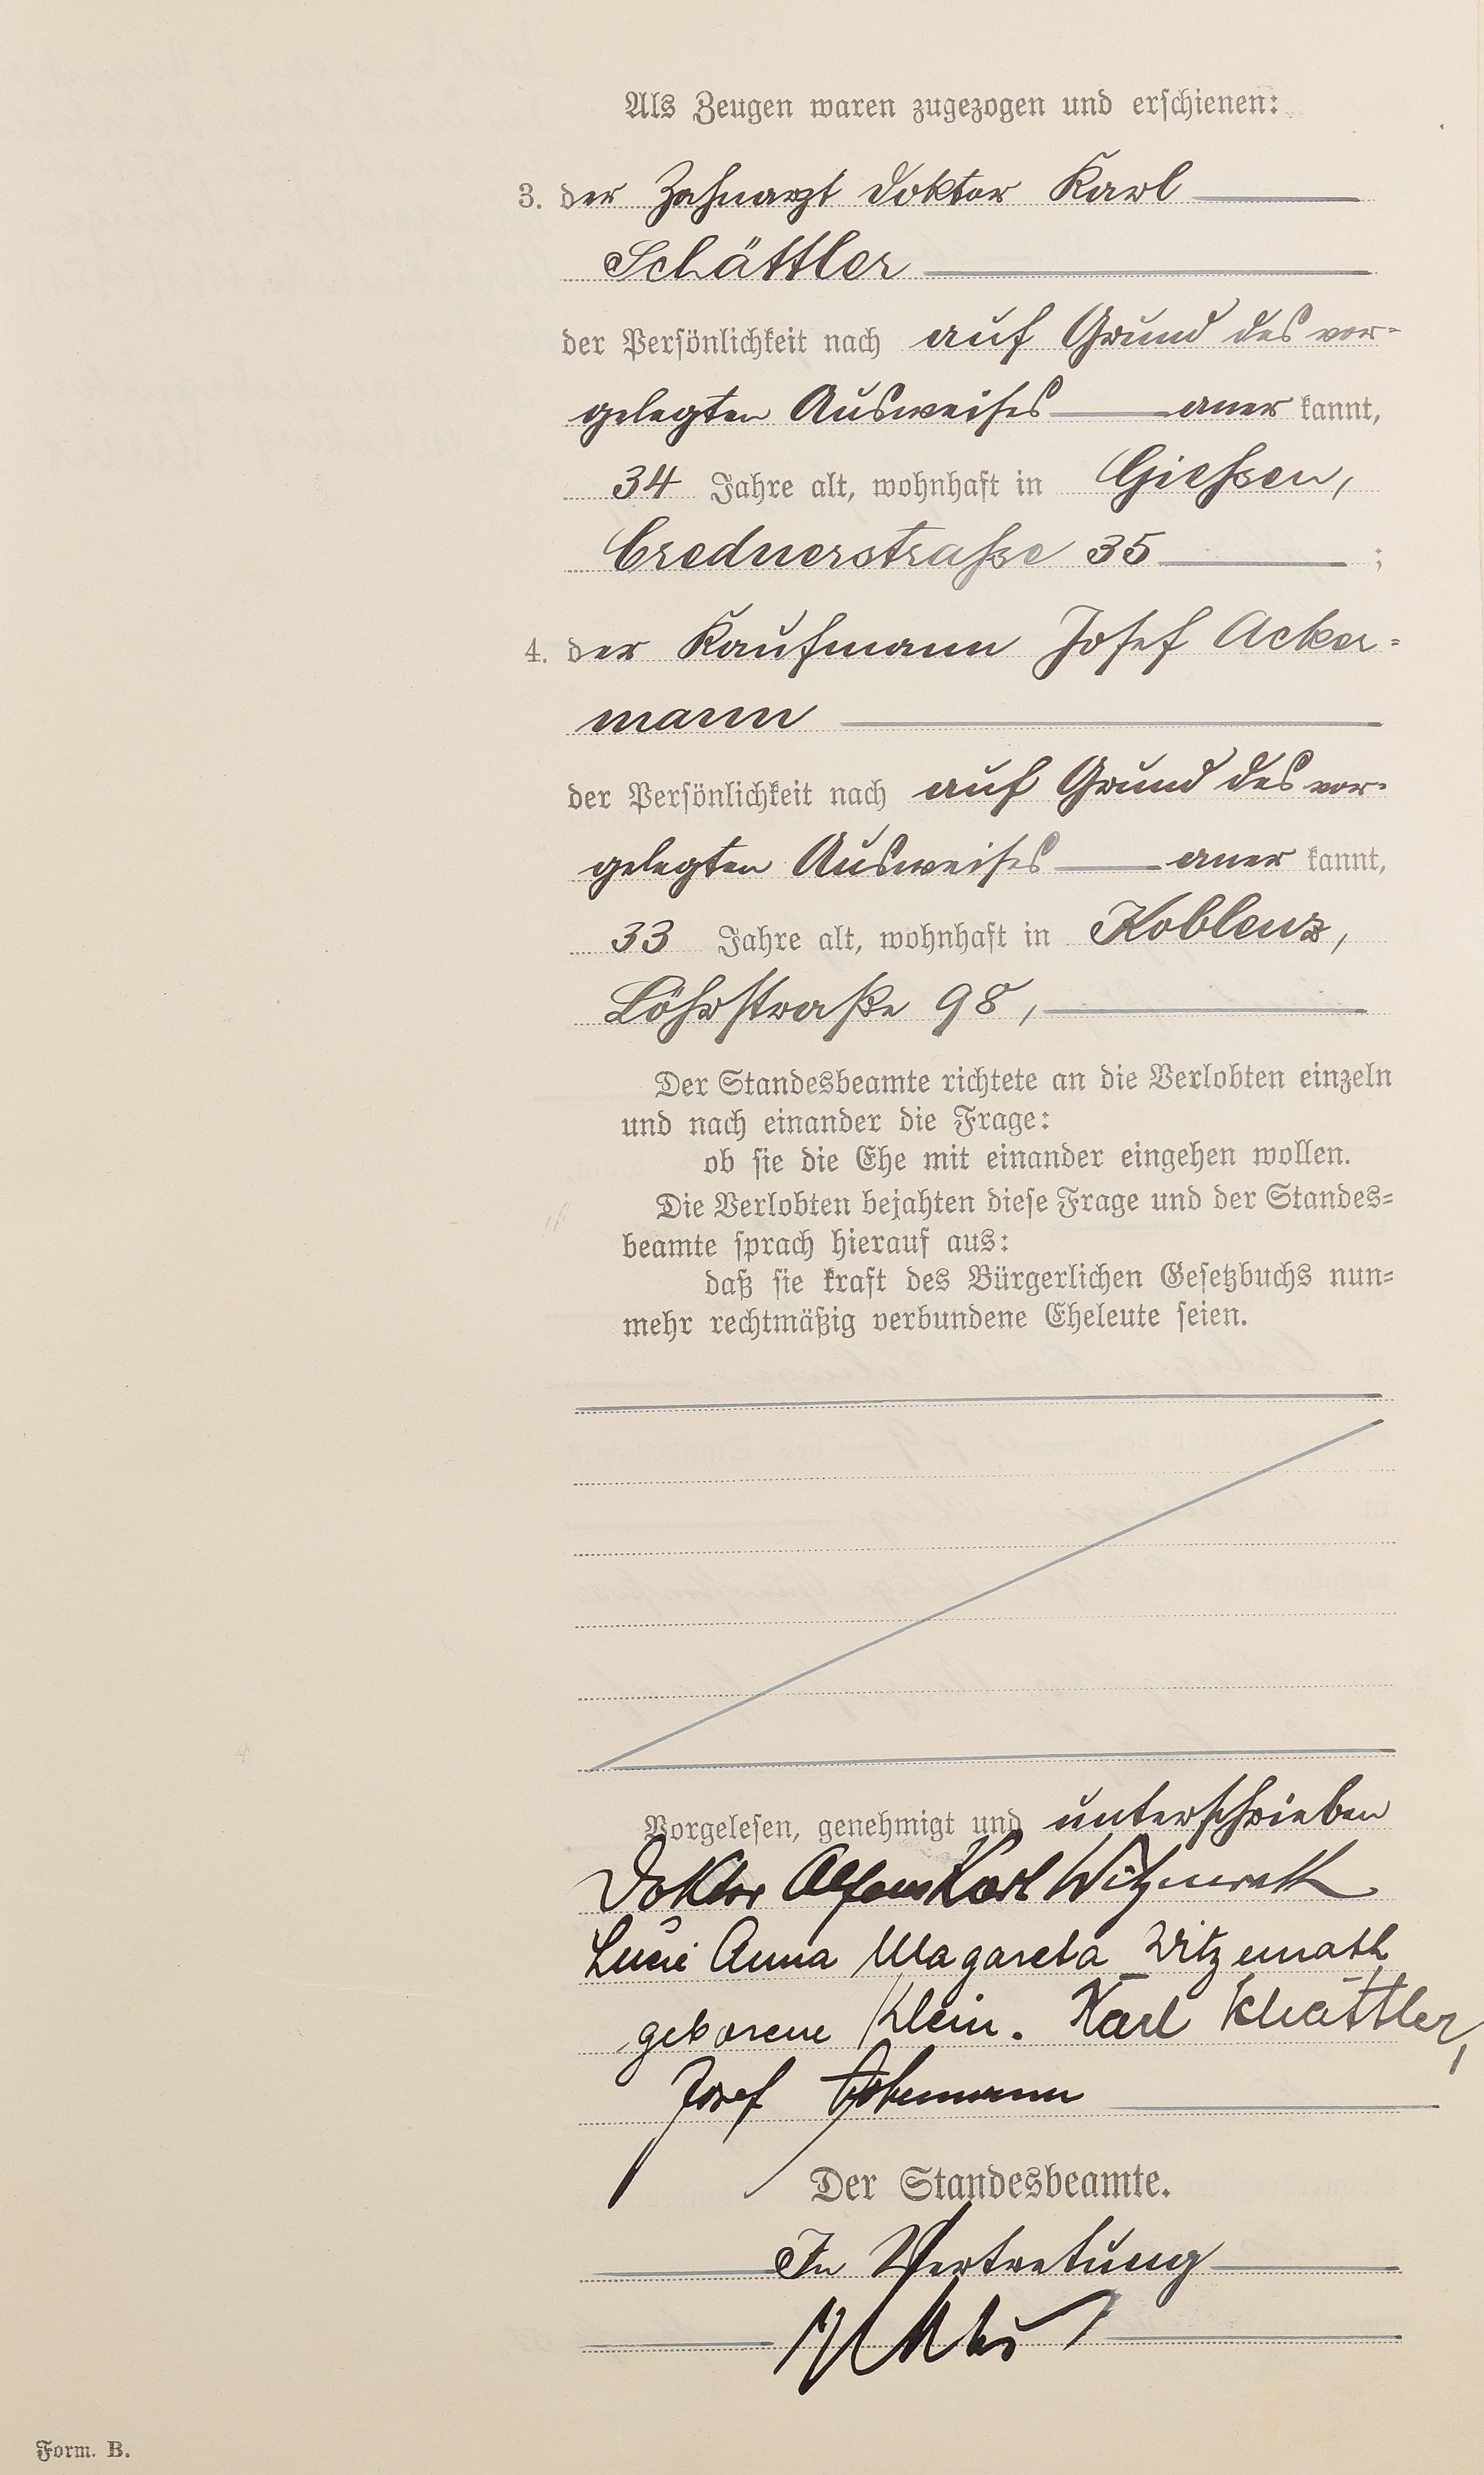 Als Zeugen waren zugezogen und erschienen:
3. der Zahnarzt Doktor Karl
Schättler
der Persönlichkeit nach auf Grund des vor-
gelegten Ausweises aner kannt,
34 Jahre alt, wohnhaft in Giessen,
Crednerstraße 35 ;
4. der Kaufmann Josef Acker-
mann
der Persönlichkeit nach auf Grund des vor-
gelegten Ausweises aner kannt,
33 Jahre alt, wohnhaft in Koblenz,
Löhrstraße 98,
Der Standesbeamte richtete an die Verlobten einzeln
und nach einander die Frage:
ob sie die Ehe mit einander eingehen wollen.
Die Verlobten bejahten diese Frage und der Standes-
beamte sprach hierauf aus:
daß sie kraft des Bürgerlichen Gesetzbuchs nun-
mehr rechtmäßig verbundene Eheleute seien.
Vorgelesen, genehmigt und unterschrieben
Doktor Alfons Karl
Anna Magareta
geborene Klein. Karl Schättler,
Josef Ackermann
Der Standesbeamte.
In Vertretung
Form. B.